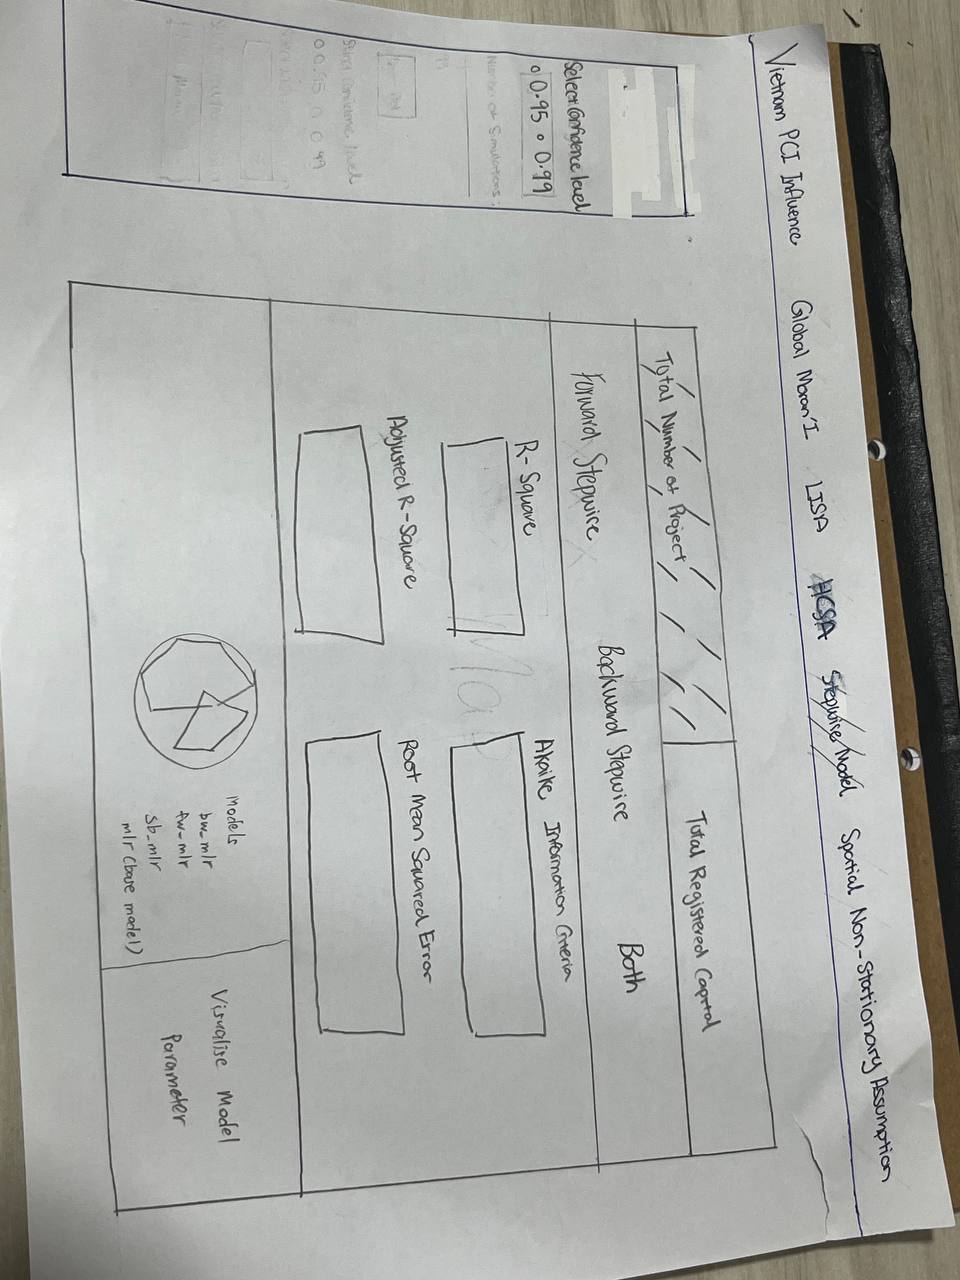 Vietnam PCI Influence
Global Moran'I
LISA
HCSA
Stepwise Model
Spatial Non-Stationary Assumption
Select Confidence level
0.95 0.99
Number of Simulations:
99
Select Confidence level
0.95 0.99
Total Number of Project
Total Registered Capital
Forward Stepwise
Backward Stepwise
Both
R-Square
Akaike Information Criteria
Map
Adjusted R-Square
Root Mean Squared Error
models
bw_mlr
fw_mlr
sb_mlr
mlr (base model)
Visualise Model
Parameter